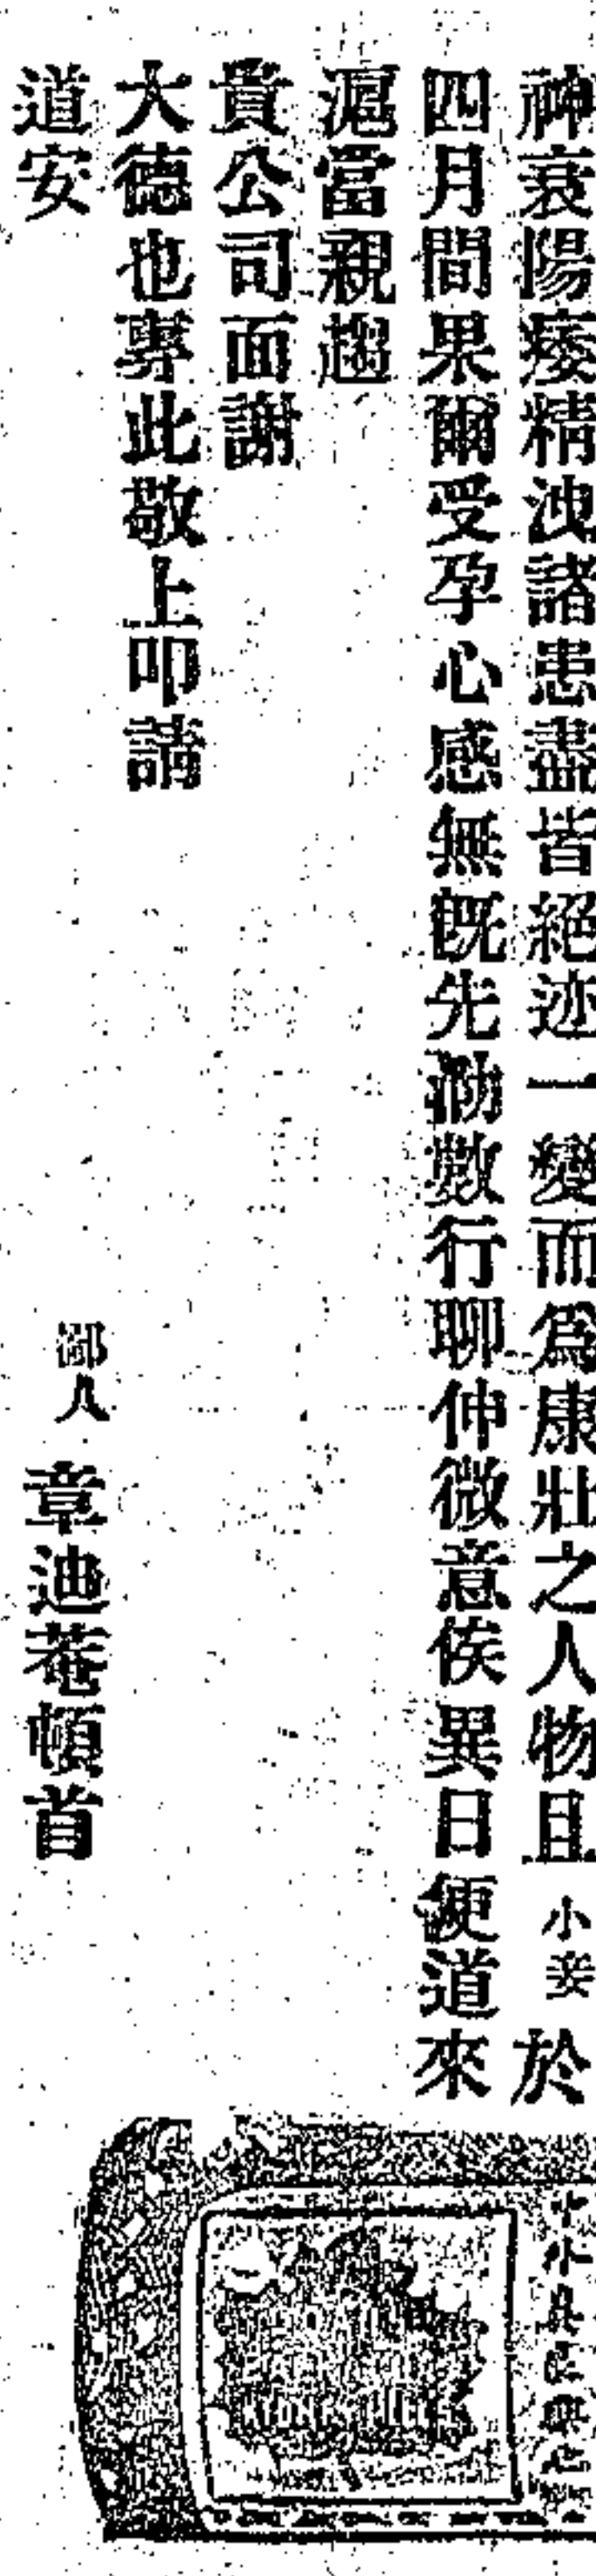 神衰陽痿精洩諸患盡皆絕迹一變而爲康壯之人物且小妾於
四月間果爾受孕心感無既先泐數行聊伸微意俟異日便道來
滬當親趨
貴公司面謝
大德也專此敬上叩請
道安
鄙人 章迪菴頓首
KIDNEY PILLS